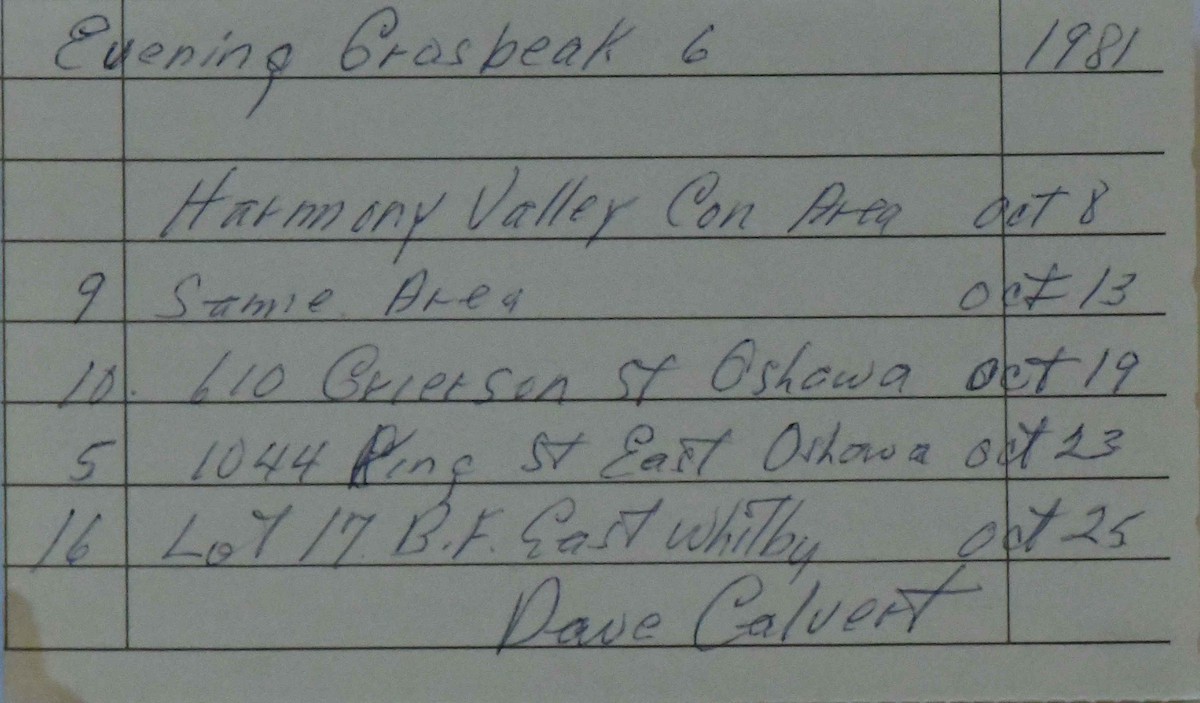 Evening Grosbeak 6 1981
Harmony Valley Con Area Oct 8
9 Same Area Oct 13
10. 610 Grierson St Oshawa Oct 19
5 1044 King St East Oshawa Oct 23
16 Lot 17 B.F. East Whitby Oct 25
Dave Calvert